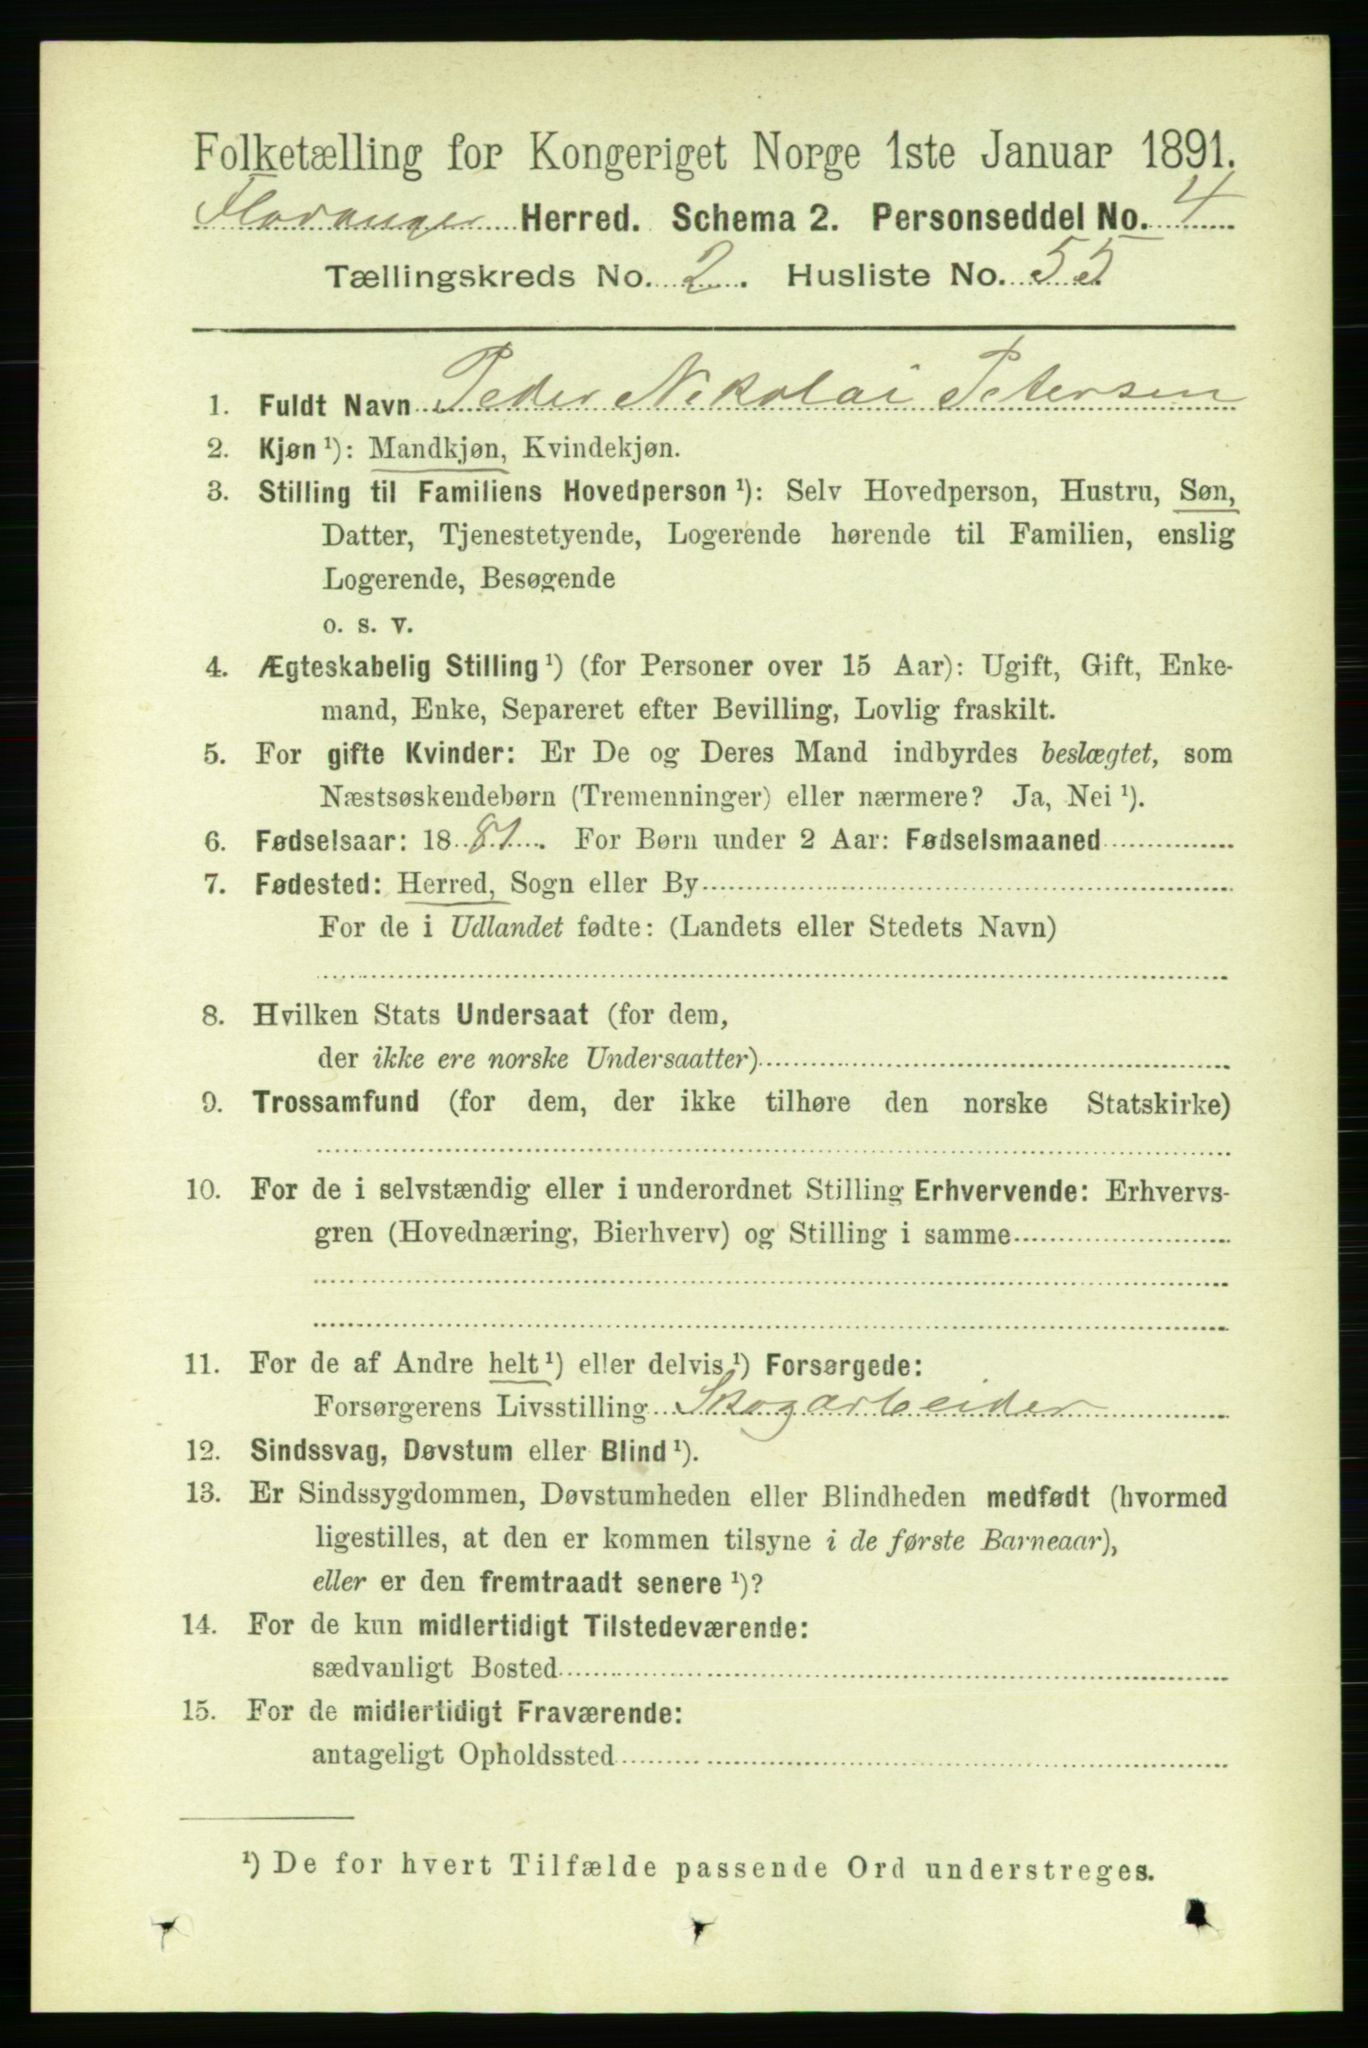 Folketælling for Kongeriget Norge 1ste Januar 1891.
Flovanger Herred. Schema 2. Personseddel No. 4
Tællingskreds No. 2. Husliste No. 55
1. Fuldt Navn Peder Nikolai Petersen
2. Kjøn ¹): Mandkjøn, Kvindekjøn.
3. Stilling til Familiens Hovedperson ¹): Selv Hovedperson, Hustru, Søn,
Datter, Tjenestetyende, Logerende hørende til Familien, enslig
Logerende, Besøgende
o. s. v.
4. Ægteskabelig Stilling ¹) (for Personer over 15 Aar): Ugift, Gift, Enke-
mand, Enke, Separeret efter Bevilling, Lovlig fraskilt.
5. For gifte Kvinder: Er De og Deres Mand indbyrdes beslægtet, som
Næstsøskendebørn (Tremenninger) eller nærmere? Ja, Nei ¹).
6. Fødselsaar: 1881. For Børn under 2 Aar: Fødselsmaaned
7. Fødested: Herred, Sogn eller By
For de i Udlandet fødte: (Landets eller Stedets Navn)
8. Hvilken Stats Undersaat (for dem,
der ikke ere norske Undersaatter)
9. Trossamfund (for dem, der ikke tilhøre den norske Statskirke)
10. For de i selvstændig eller i underordnet Stilling Erhvervende: Erhvervs-
gren (Hovednæring, Bierhverv) og Stilling i samme
11. For de af Andre helt ¹) eller delvis ¹) Forsørgede:
Forsørgerens Livsstilling Skogarbeider
12. Sindssvag, Døvstum eller Blind ¹).
13. Er Sindssygdommen, Døvstumheden eller Blindheden medfødt (hvormed
ligestilles, at den er kommen tilsyne i de første Barneaar),
eller er den fremtraadt senere ¹)?
14. For de kun midlertidigt Tilstedeværende:
sædvanligt Bosted
15. For de midlertidigt Fraværende:
antageligt Opholdssted
¹) De for hvert Tilfælde passende Ord understreges.